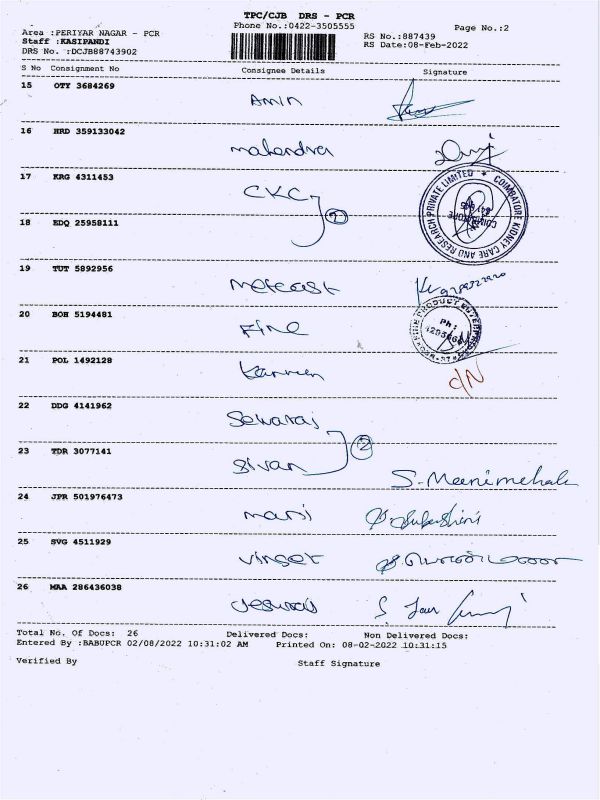 TPC/CJB DRS - PCR
Phone No.:0422-3505555
Page No.:2
Area :PERIYAR NAGAR - PCR
Staff :KASIPANDI
DRS No. :DCJB88743902
RS No.:887439
RS Date:08-Feb-2022
S No Consignment No Consignee Details Signature
15 OTY 3684269 Amin
16 HRD 359133042 Mahendra
17 KRG 4311453 CKC
COIMBATORE KIDNEY CARE AND RESEARCH PRIVATE LIMITED ★
COIMBATORE
18 EDQ 25958111
19 TUT 5892956 Metcast
20 BOH 5194481 Fine
Ph :
21 POL 1492128
C/N
22 DDG 4141962 Selvaraj
2
23 TDR 3077141 Sivan S. Manimehala
24 JPR 501976473 Mani
25 SVG 4511929
26 MAA 286436038 Jesuraj
Total No. Of Docs: 26 Delivered Docs: Non Delivered Docs:
Entered By :BABUPCR 02/08/2022 10:31:02 AM Printed On: 08-02-2022 10:31:15
Verified By Staff Signature